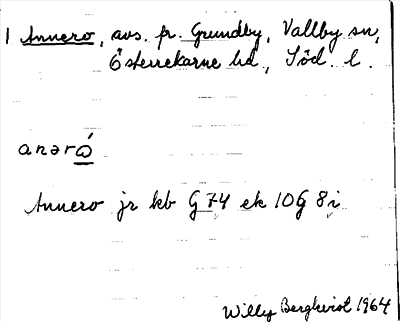 1 Annero, avs. fr. Grundby, Vallby sn,
Österrekarne hd., Söd. l.
anərώ
Annero jr kb G74 ek 10G 8i
Willy Bergkvist 1964